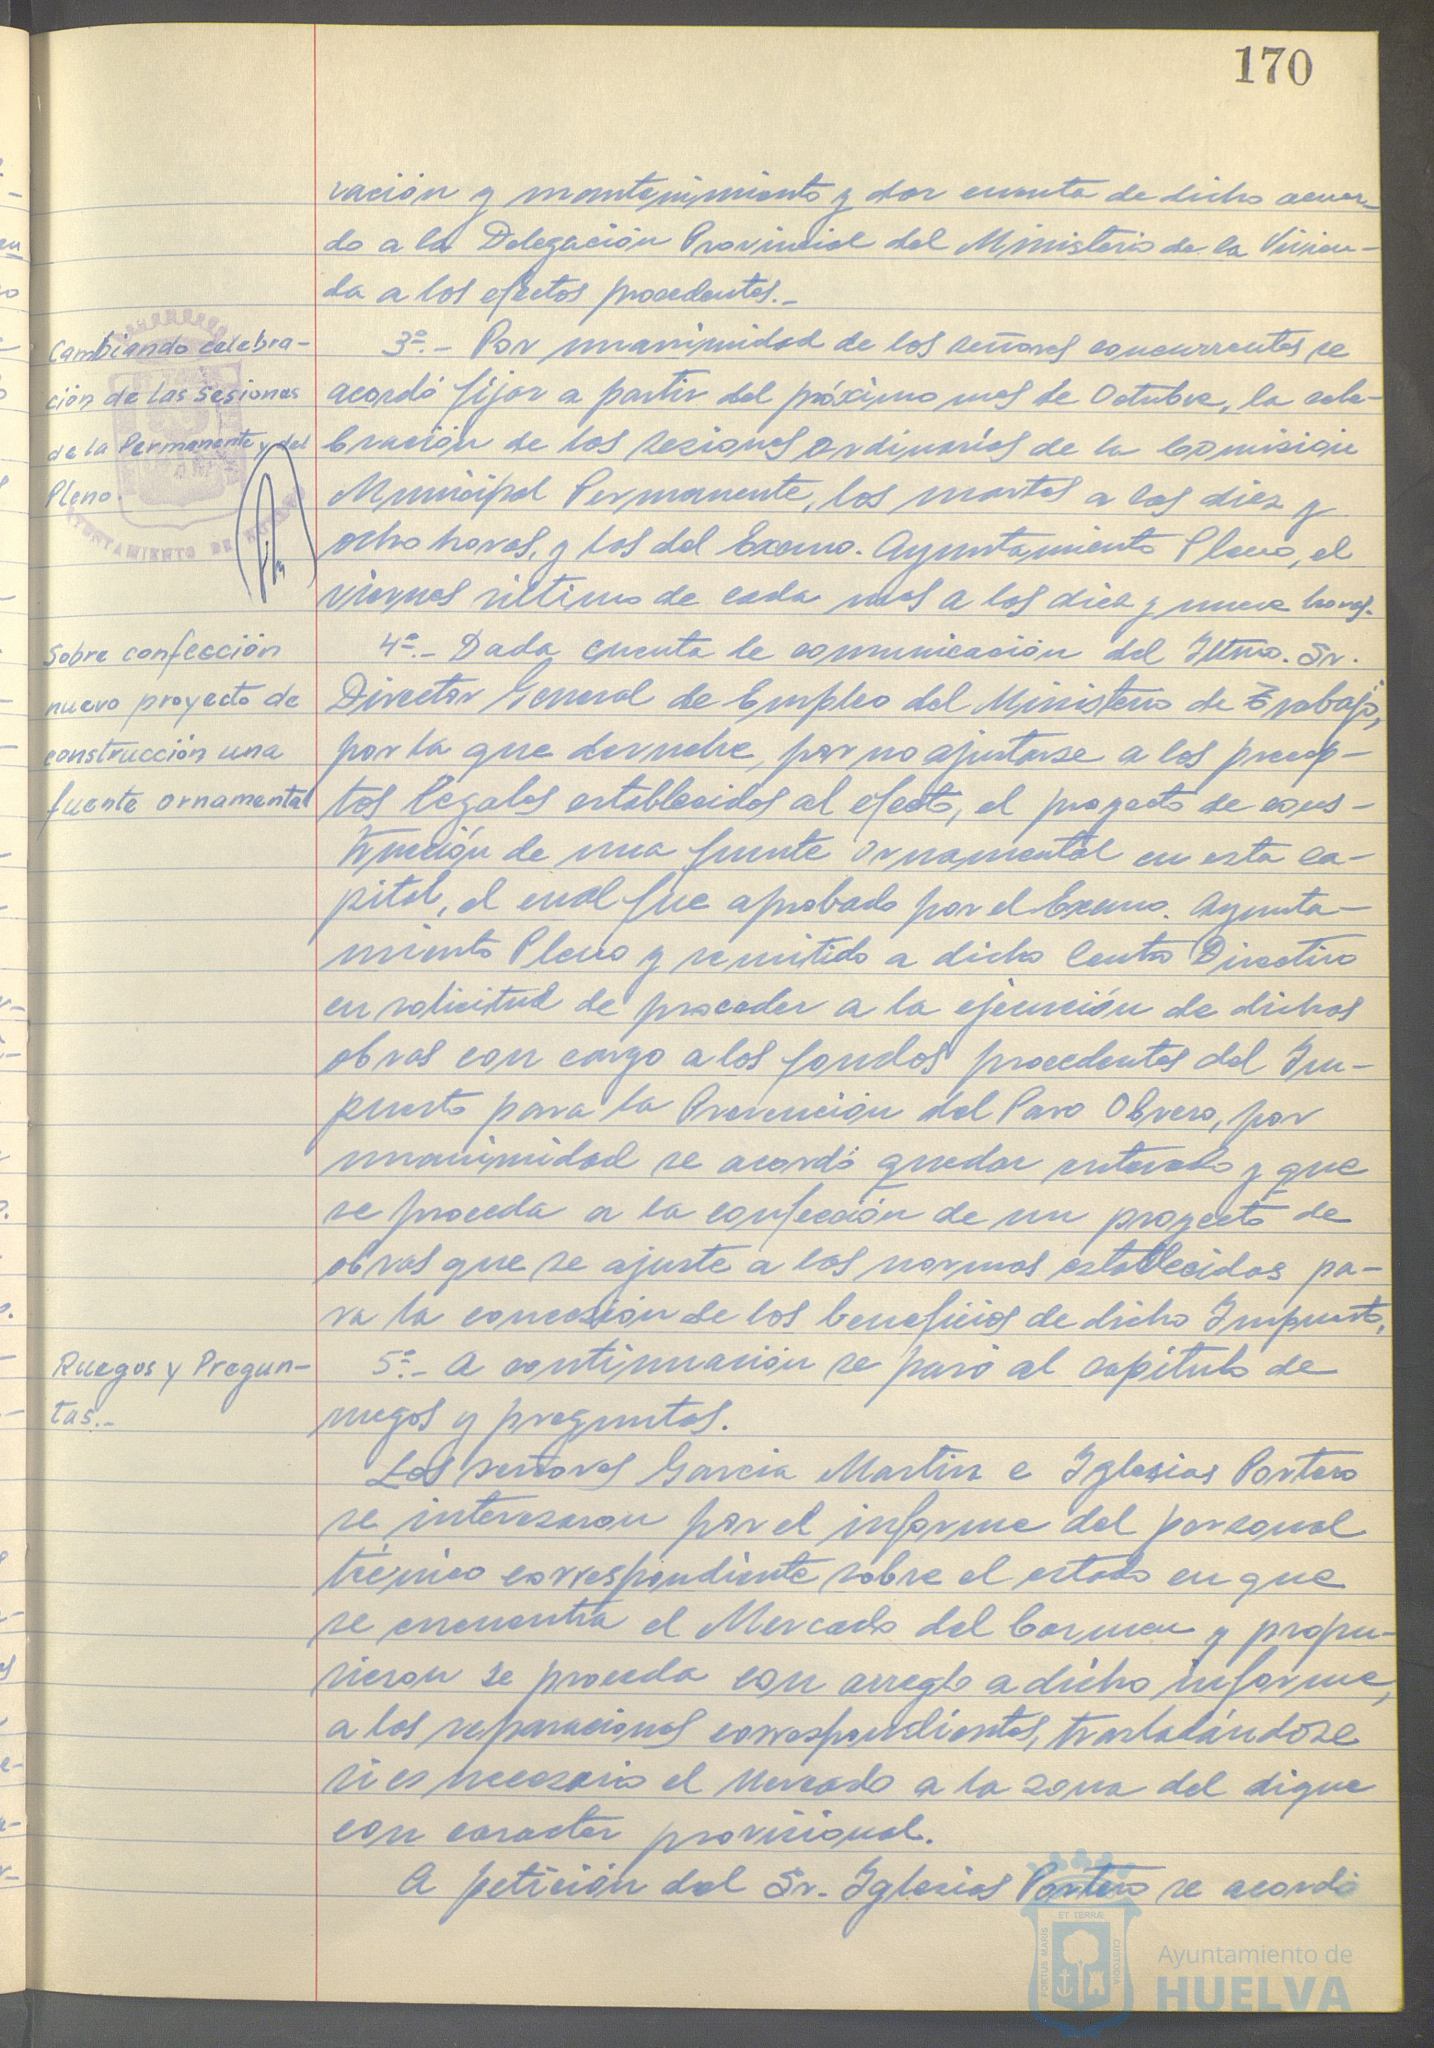 170
vación y mantenimiento y dar cuenta de dicho acuer-
do a la Delegación Provincial del Ministerio de la Vivien-
da a los efectos procedentes.-
Cambiando celebra-
ción de las sesiones
de la Permanente y del
Pleno.
3º.- Por unanimidad de los señores concurrentes se
acordó fijar a partir del próximo mes de Octubre, la cele-
bración de las sesiones ordinarias de la Comisión
Municipal Permanente, los martes a las diez y
ocho horas, y las del Excmo. Ayuntamiento Pleno, el
viernes último de cada mes a las diez y nueve horas.
Sobre confección
nuevo proyecto de
construcción una
fuente ornamental
4º.- Dada cuenta de comunicación del Iltmo. Sr.
Director General de Empleo del Ministerio de Trabajo,
por la que devuelve, por no ajustarse a los precep-
tos legales establecidos al efecto, el proyecto de cons-
trucción de una fuente ornamental en esta ca-
pital, el cual fue aprobado por el Excmo. Ayunta-
miento Pleno y remitido a dicho Centro Directivo
en solicitud de proceder a la ejecución de dichas
obras con cargo a los fondos procedentes del Im-
puesto para la Prevención del Paro Obrero, por
unanimidad se acordó quedar enterado y que
se proceda a la confección de un proyecto de
obras que se ajuste a las normas establecidas pa-
ra la concesión de los beneficios de dicho Impuesto.
Ruegos y Pregun-
tas.-
5º.- A continuación se pasó al capítulo de
ruegos y preguntas.
Los señores García Martín e Iglesias Portero
se interesaron por el informe del personal
técnico correspondiente sobre el estado en que
se encuentra el Mercado del Carmen y propu-
sieron se proceda con arreglo a dicho informe,
a las reparaciones correspondientes, trasladándose
si es necesario el Mercado a la zona del dique
con caracter provisional.
A petición del Sr. Iglesias Portero se acordó
PORTUS MARIS
ET TERRAE
CUSTODIA
Ayuntamiento de
HUELVA